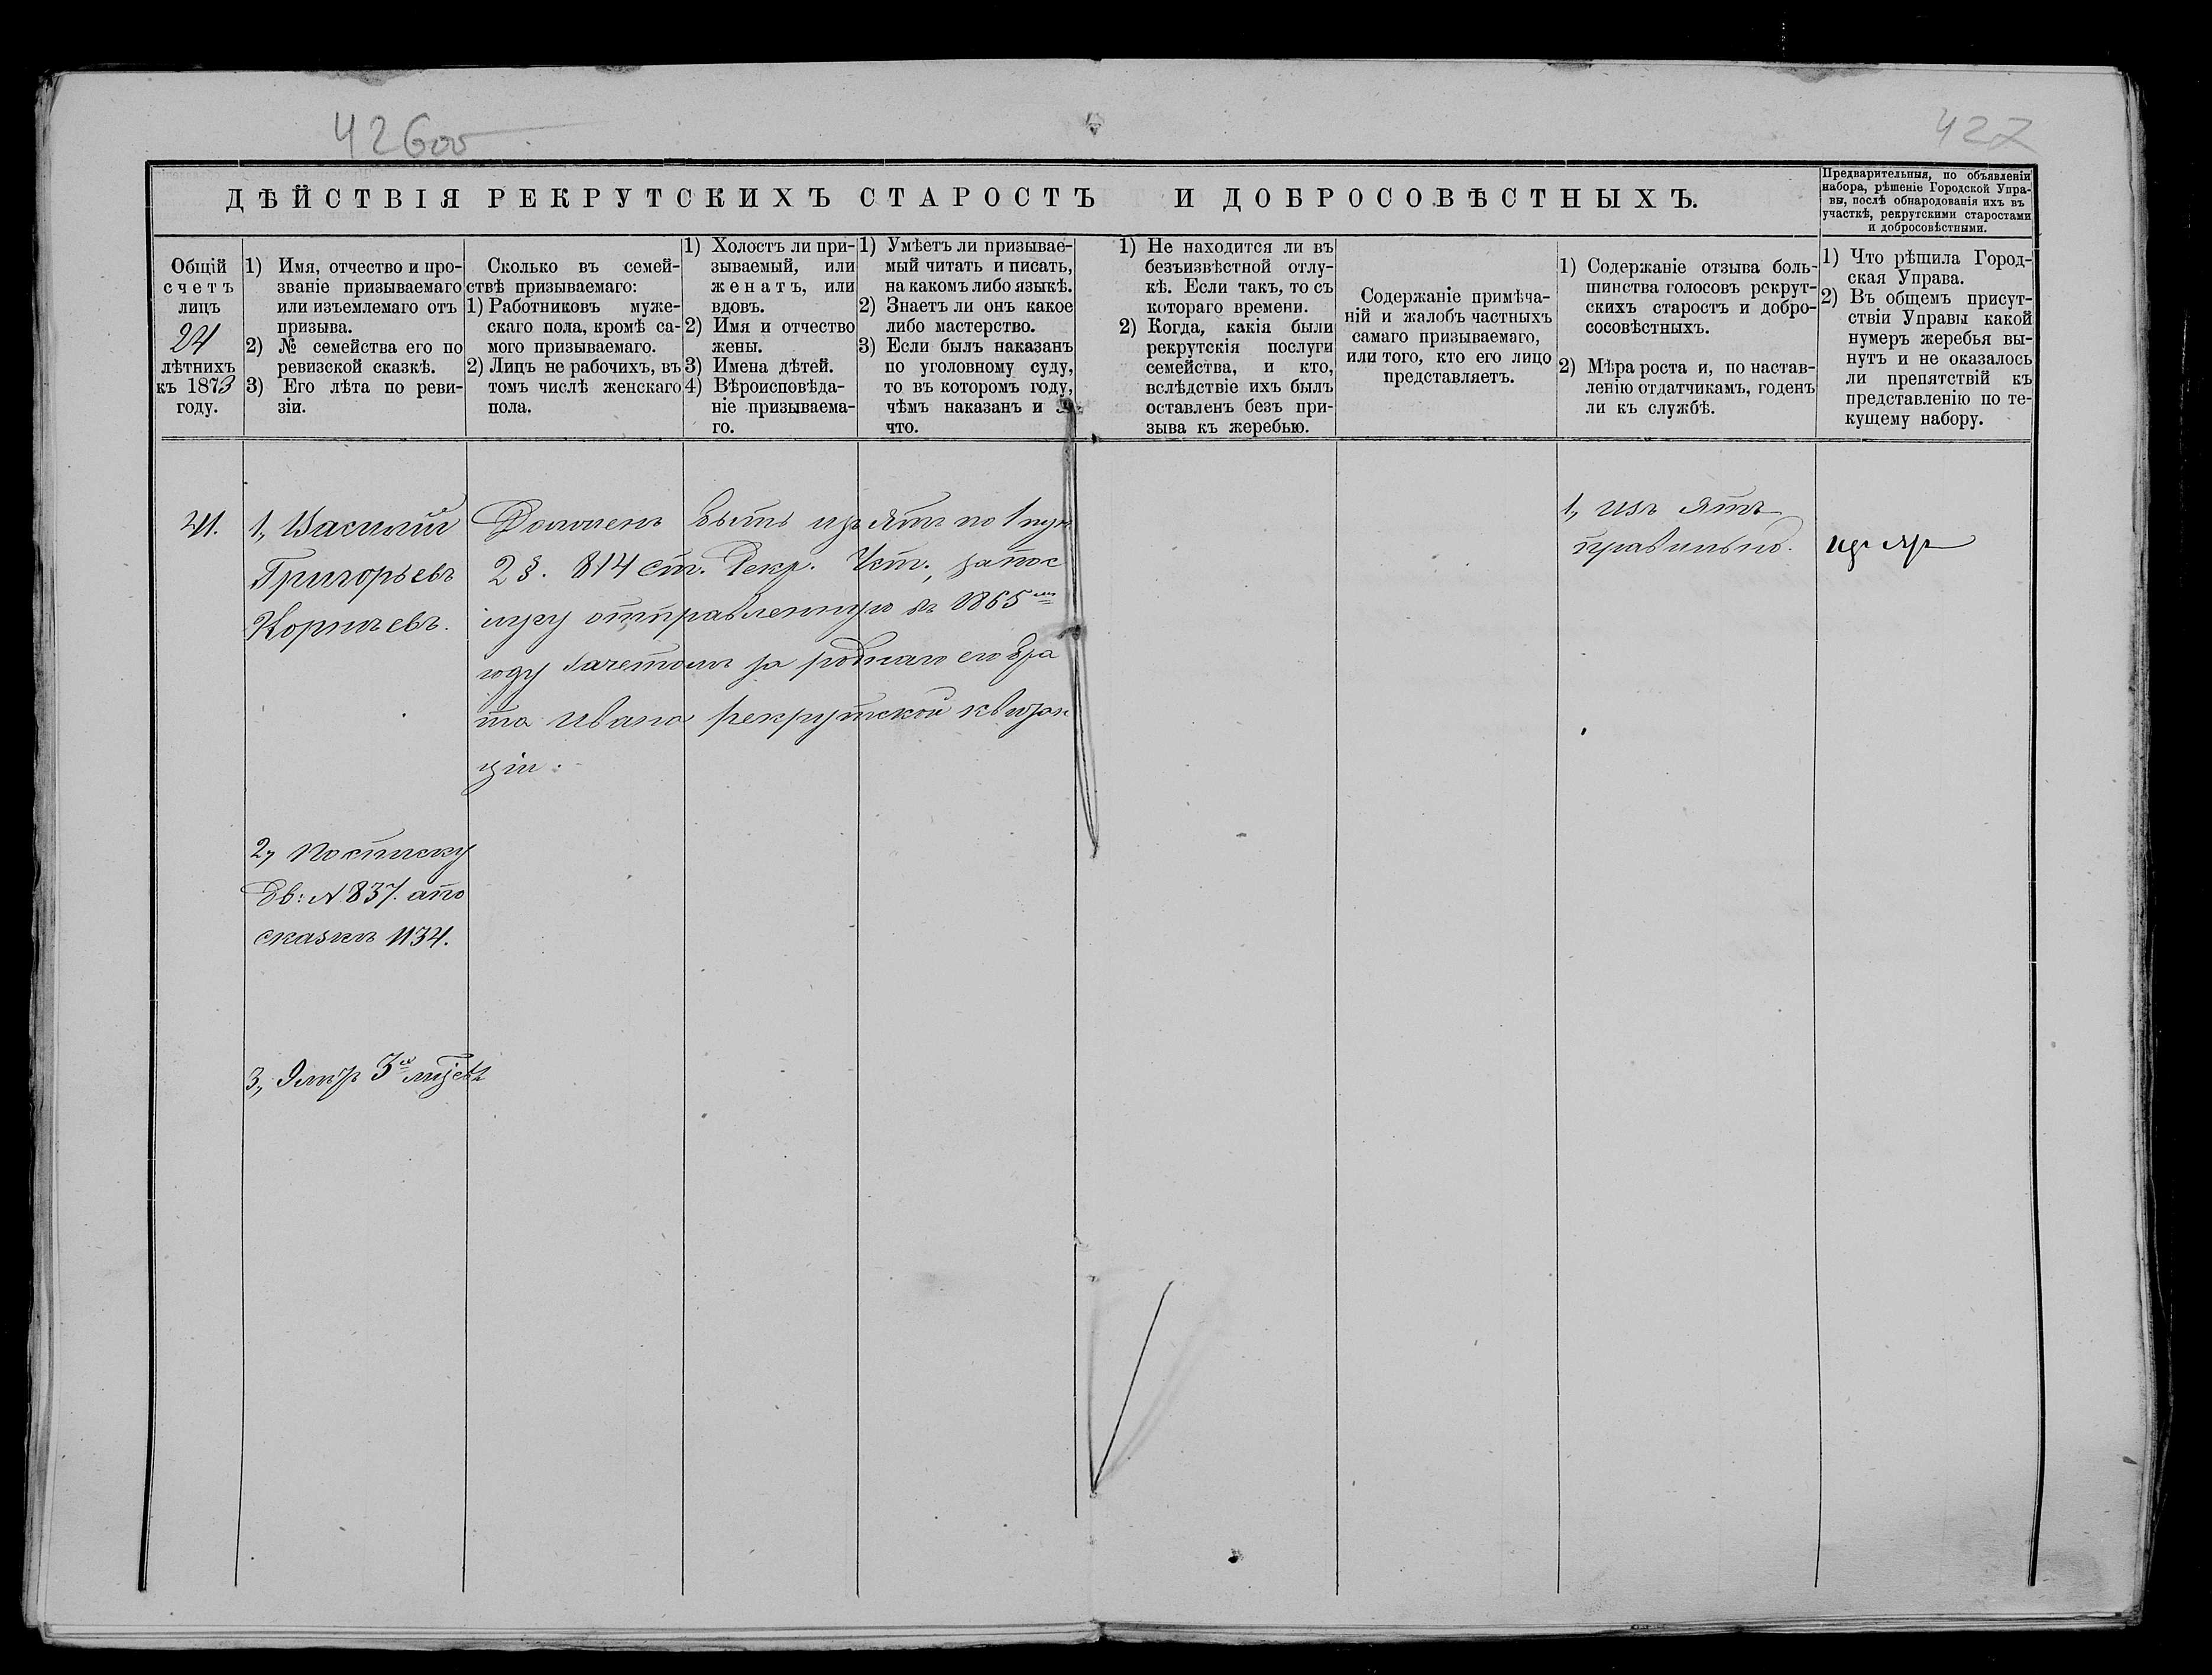 426об
427
ДѢЙСТВІЯ РЕКРУТСКИХЪ СТАРОСТЪ И ДОБРОСОВѢСТНЫХЪ.
Предварительныя, по объявленіи
набора, рѣшеніе Городской Упра-
вы, послѣ обнародованія ихъ въ
участкѣ, рекрутскими старостами
и добросовѣстными.
Общій
счетъ
лицъ
24
лѣтнихъ
къ 1873
году.
1) Имя, отчество и про-
званіе призываемаго
или изъемлемаго отъ
призыва.
2) № семейства его по
ревизской сказкѣ.
3) Его лѣта по реви-
зіи.
Сколько въ семей-
ствѣ призываемаго:
1) Работниковъ муже-
скаго пола, кромѣ са-
мого призываемаго.
2) Лицъ не рабочихъ, въ
томъ числѣ женскаго
пола.
1) Холостъ ли при-
зываемый, или
женатъ, или
вдовъ.
2) Имя и отчество
жены.
3) Имена дѣтей.
4) Вѣроисповѣда-
ніе призываема-
го.
1) Умѣетъ ли призывае-
мый читать и писать,
на какомъ либо языкѣ.
2) Знаетъ ли онъ какое
либо мастерство.
3) Если былъ наказанъ
по уголовному суду,
то въ которомъ году,
чѣмъ наказанъ и за
что.
1) Не находится ли въ
безъизвѣстной отлу-
кѣ. Если такъ, то съ
котораго времени.
2) Когда, какія были
рекрутскія послуги
семейства, и кто,
вслѣдствіе ихъ былъ
оставленъ безъ при-
зыва къ жеребью.
Содержаніе примѣча-
ній и жалобъ частныхъ
самаго призываемаго,
или того, кто его лицо
представляетъ.
1) Содержаніе отзыва боль-
шинства голосовъ рекрут-
скихъ старостъ и добро-
сосовѣстныхъ.
2) Мѣра роста и, по настав-
ленію отдатчикамъ, годенъ
ли къ службѣ.
1) Что рѣшила Город-
ская Управа.
2) Въ общемъ присут-
ствіи Управы какой
нумеръ жеребья вы-
нутъ и не оказалось
ли препятствій къ
представленію по те-
кущему набору.
21.
1, Василій
Григорьевъ
Корнѣевъ.
2, По списку
Дв: № 837. а по
сказкѣ 1134.
3,
Долженъ быть изъятъ по 1 пун
2 §. 814 ст. Рекр. Уст., за пос
лугу отправленную въ 1865 мъ
году зачетомъ за роднаго его бра
та Ивана рекрутской квитан
ціи.
1, Изъятъ
правильно.